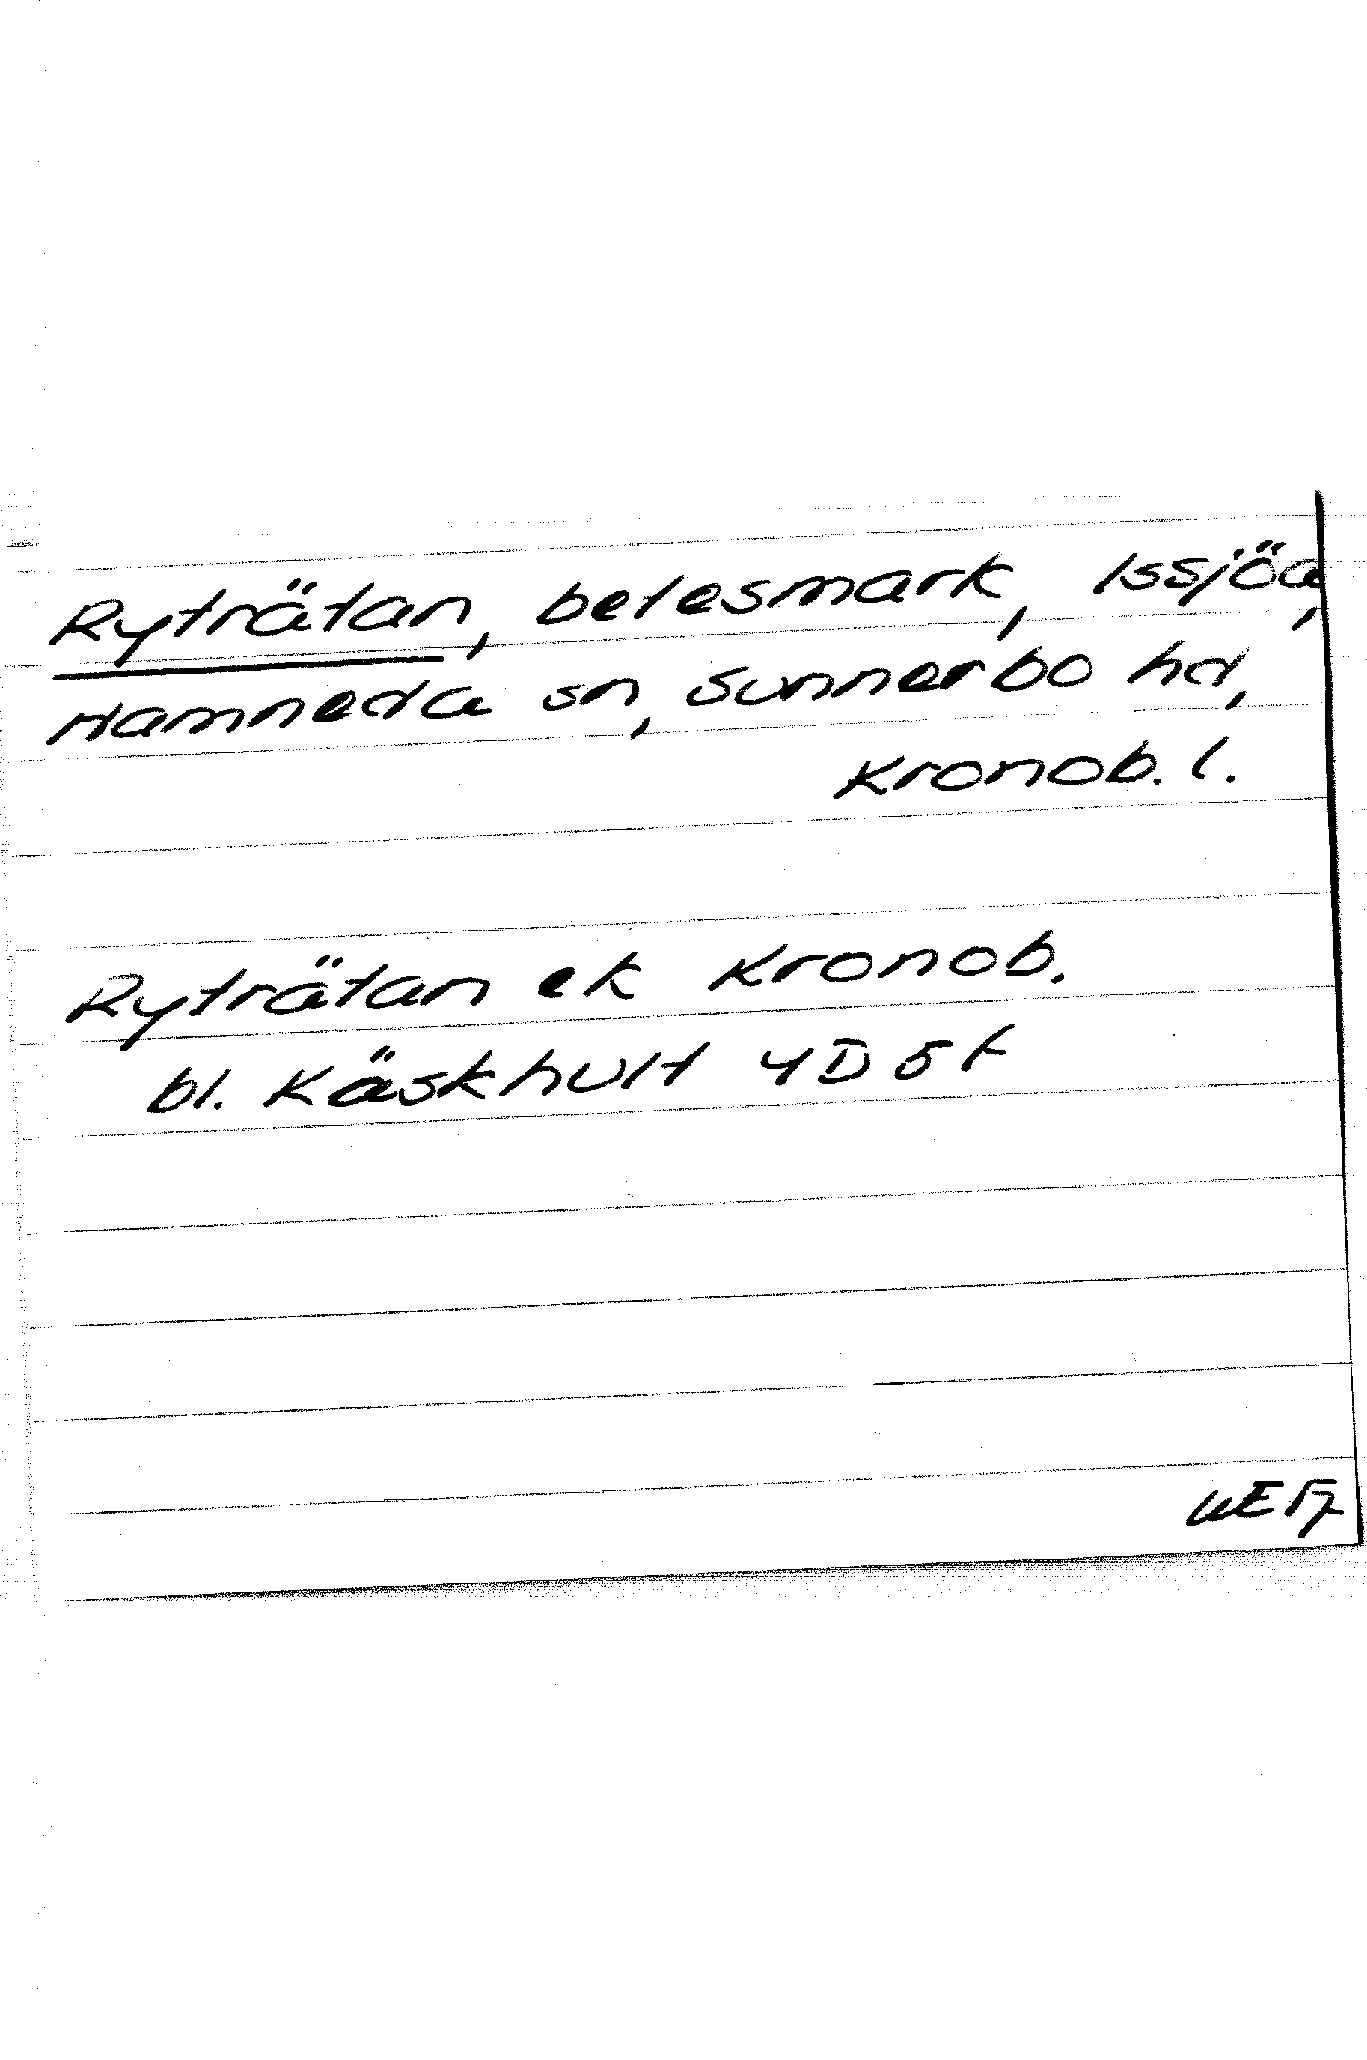 Ryträtan, betesmark, Issjöa,
Hamneda sn, Sunnerbo hd,
Kronob. l.
Ryträtan ek Kronob.
bl. Käskhult 4D5f